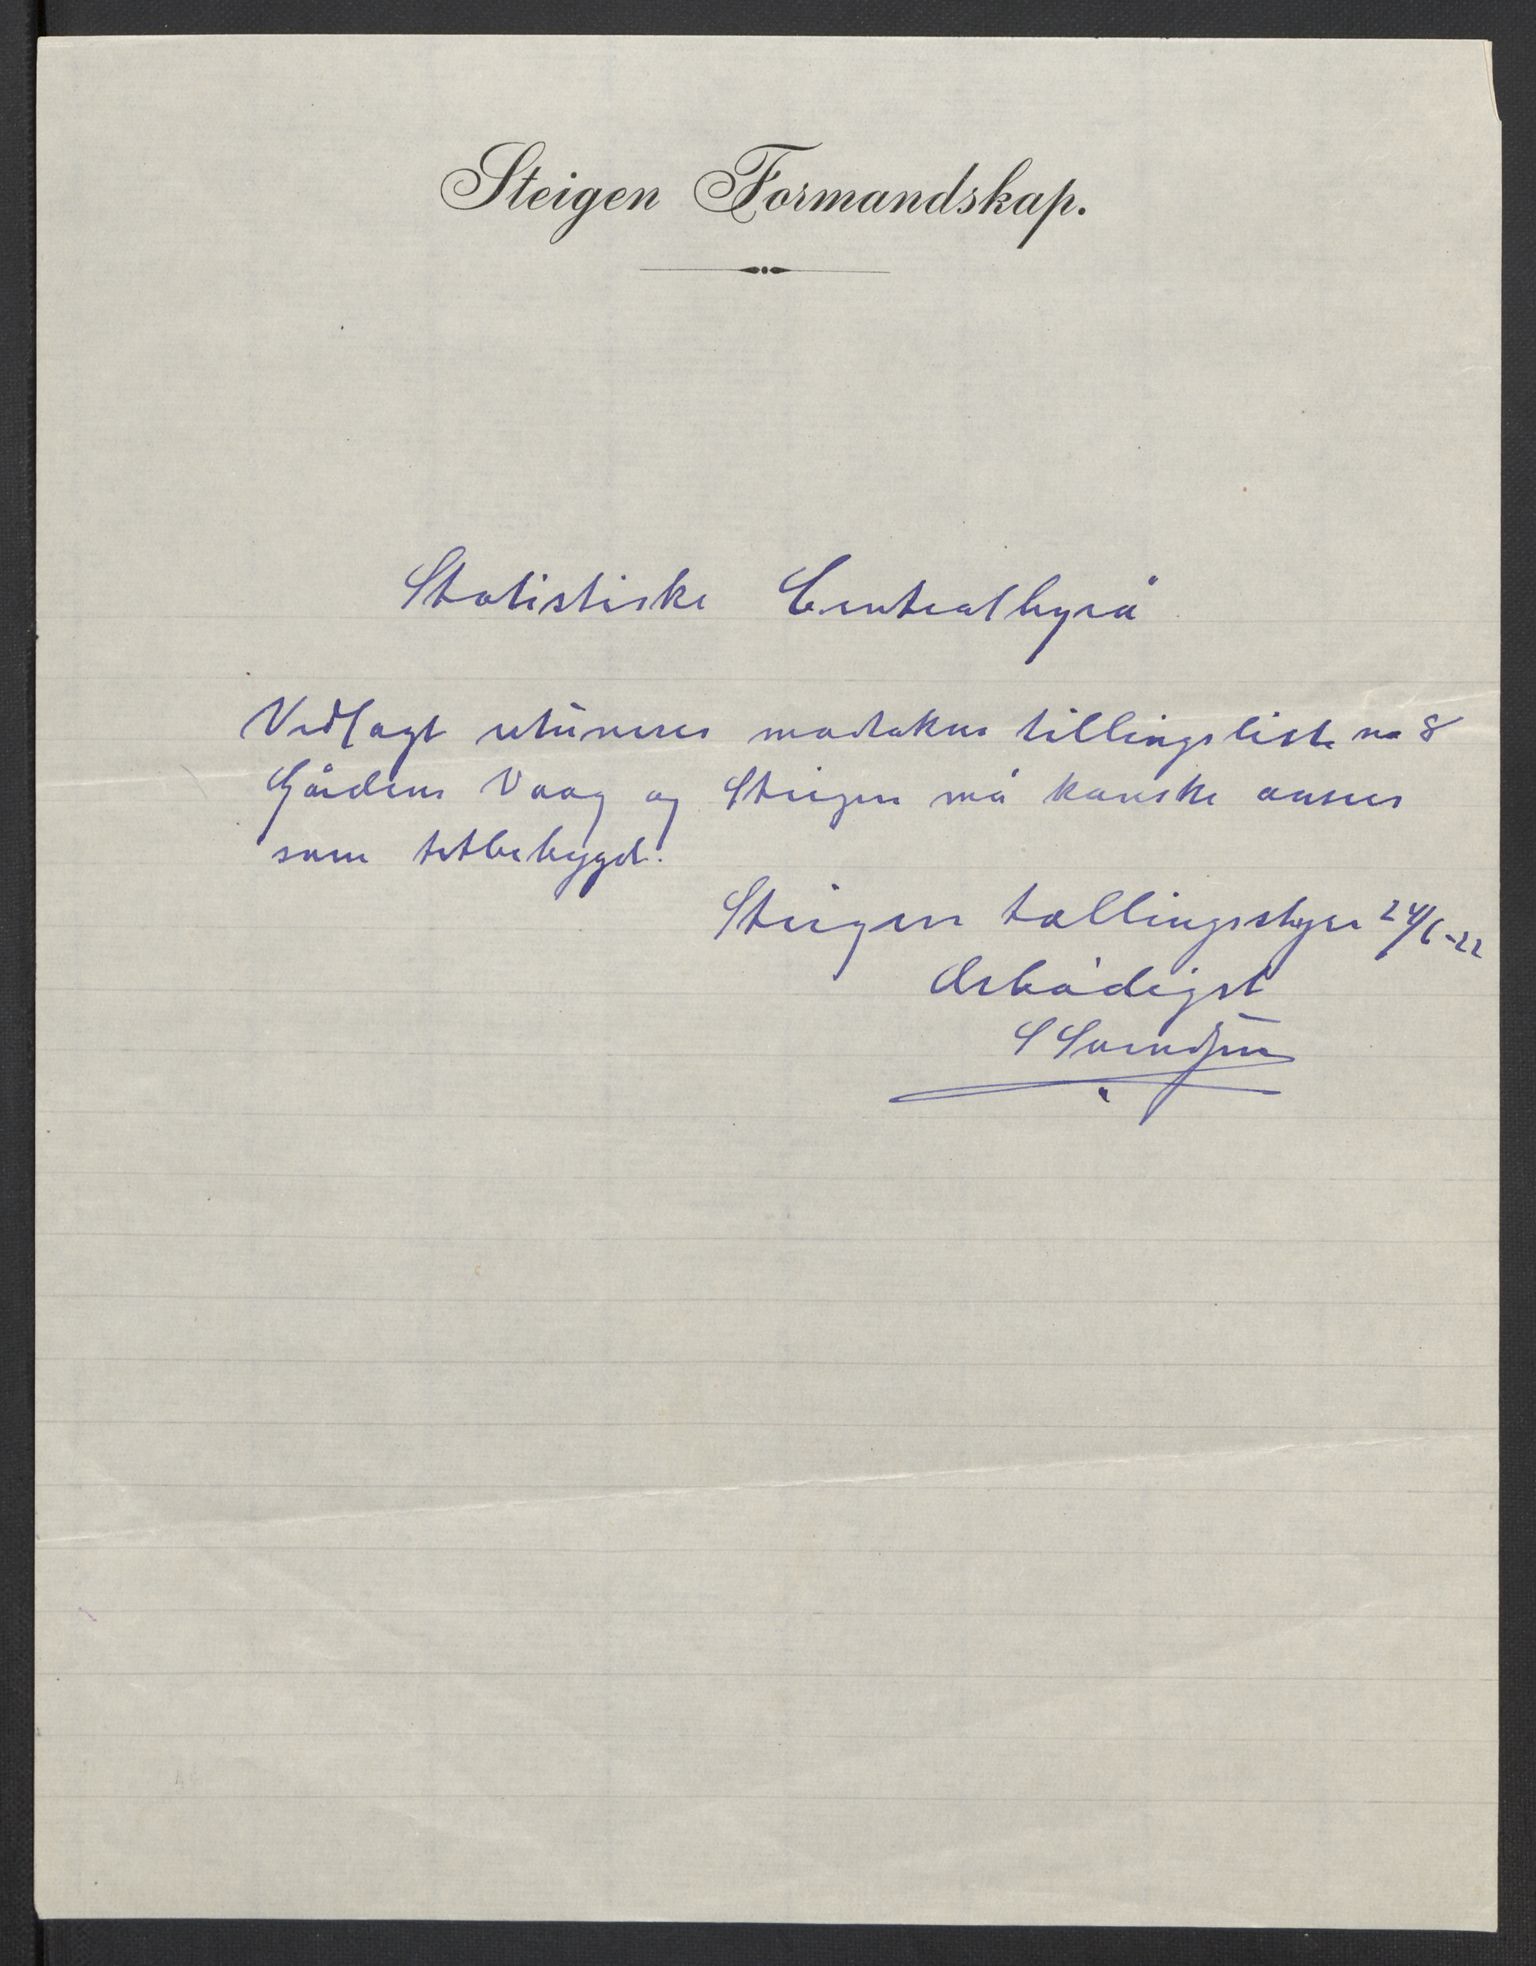 Steigen Formandskap.
Statistiske Centralbyrå
Vedlagt returneres modtakne tellingsliste no 8
Gårdene Vaag og Steigen må kanske anses
som tetbebygd.
Steigen tellingsstyre 24/6-22
Ærbødigst
S Svendsen